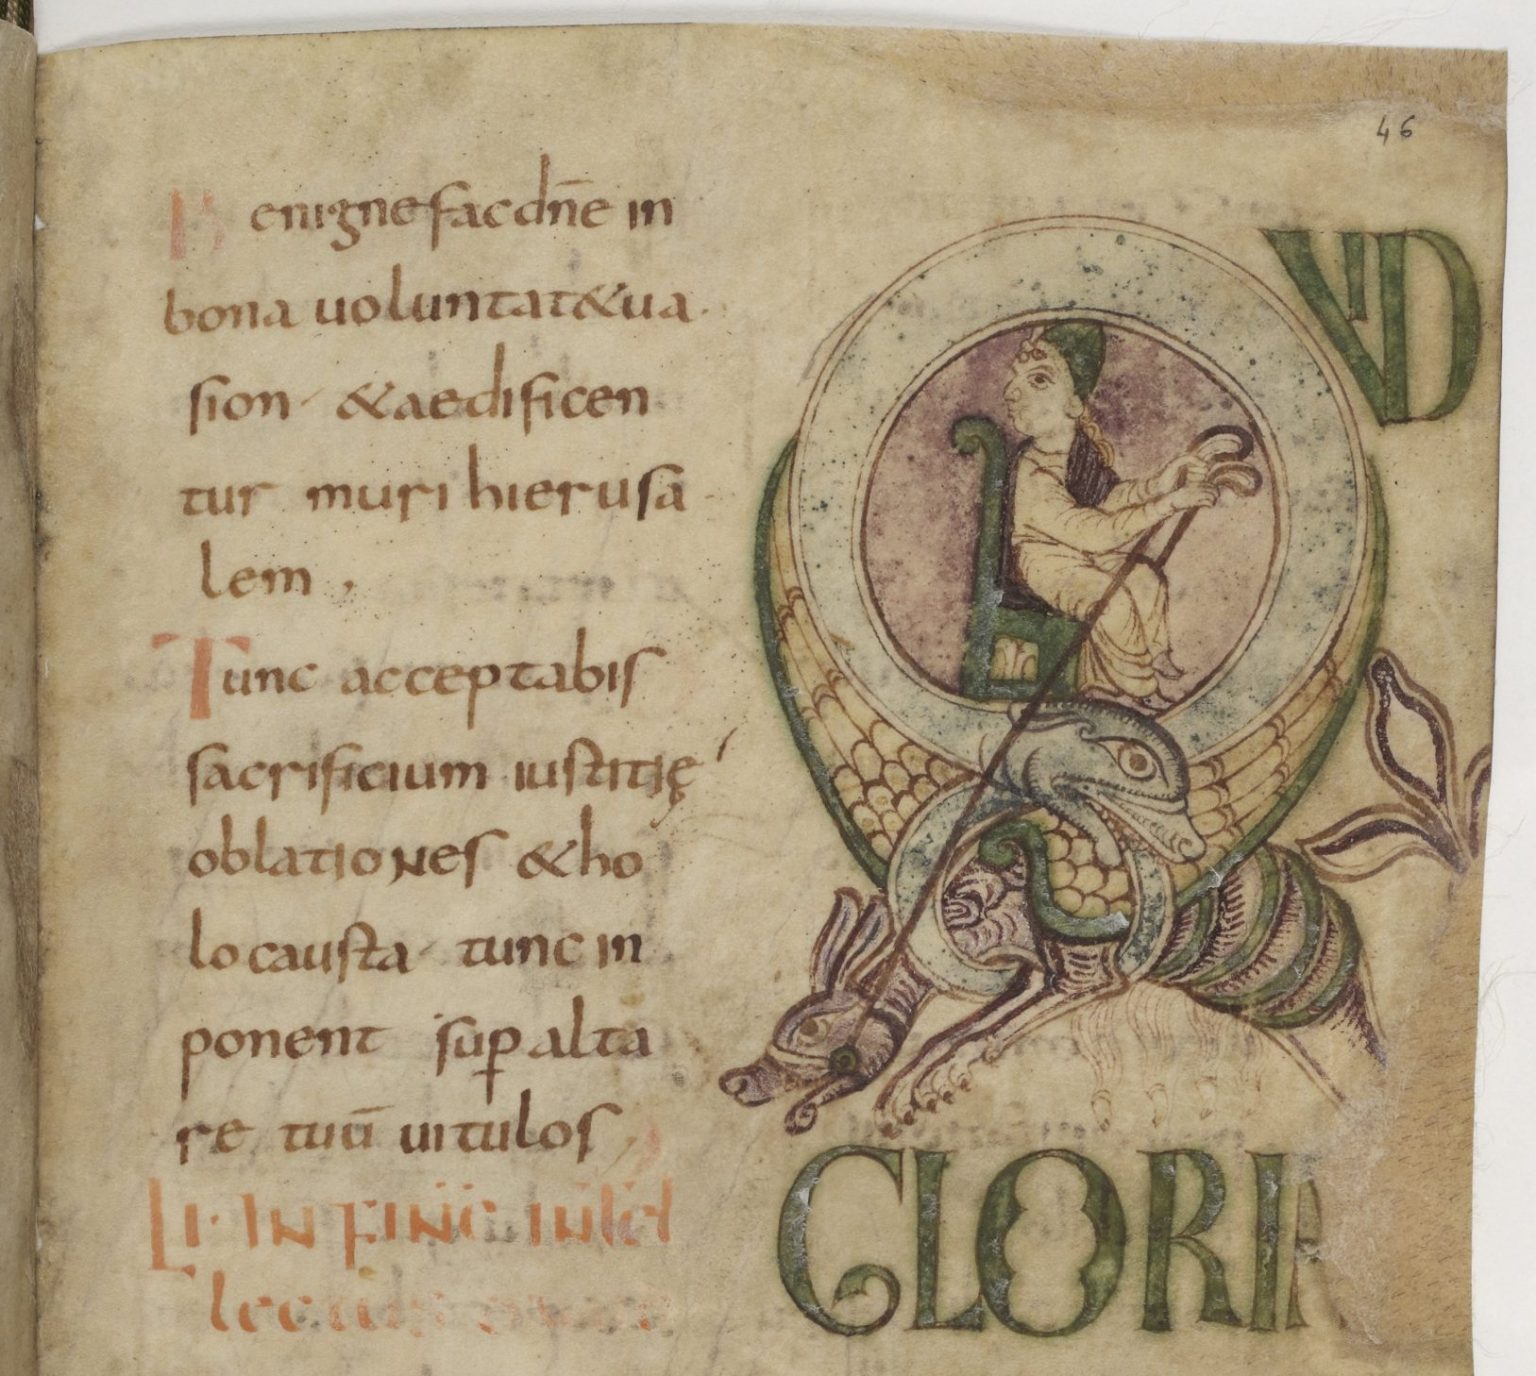 46
Benigne fac dn̄e in
bona uoluntate &ua
sion &aedificen
tur muri hierusa
lem,
Tunc acceptabis
sacrificium iustitię
oblationes &ho
locausta tunc in
ponent sup alta
re tuū uitulos
LI· IN FINĒ
QVID
GLORIA